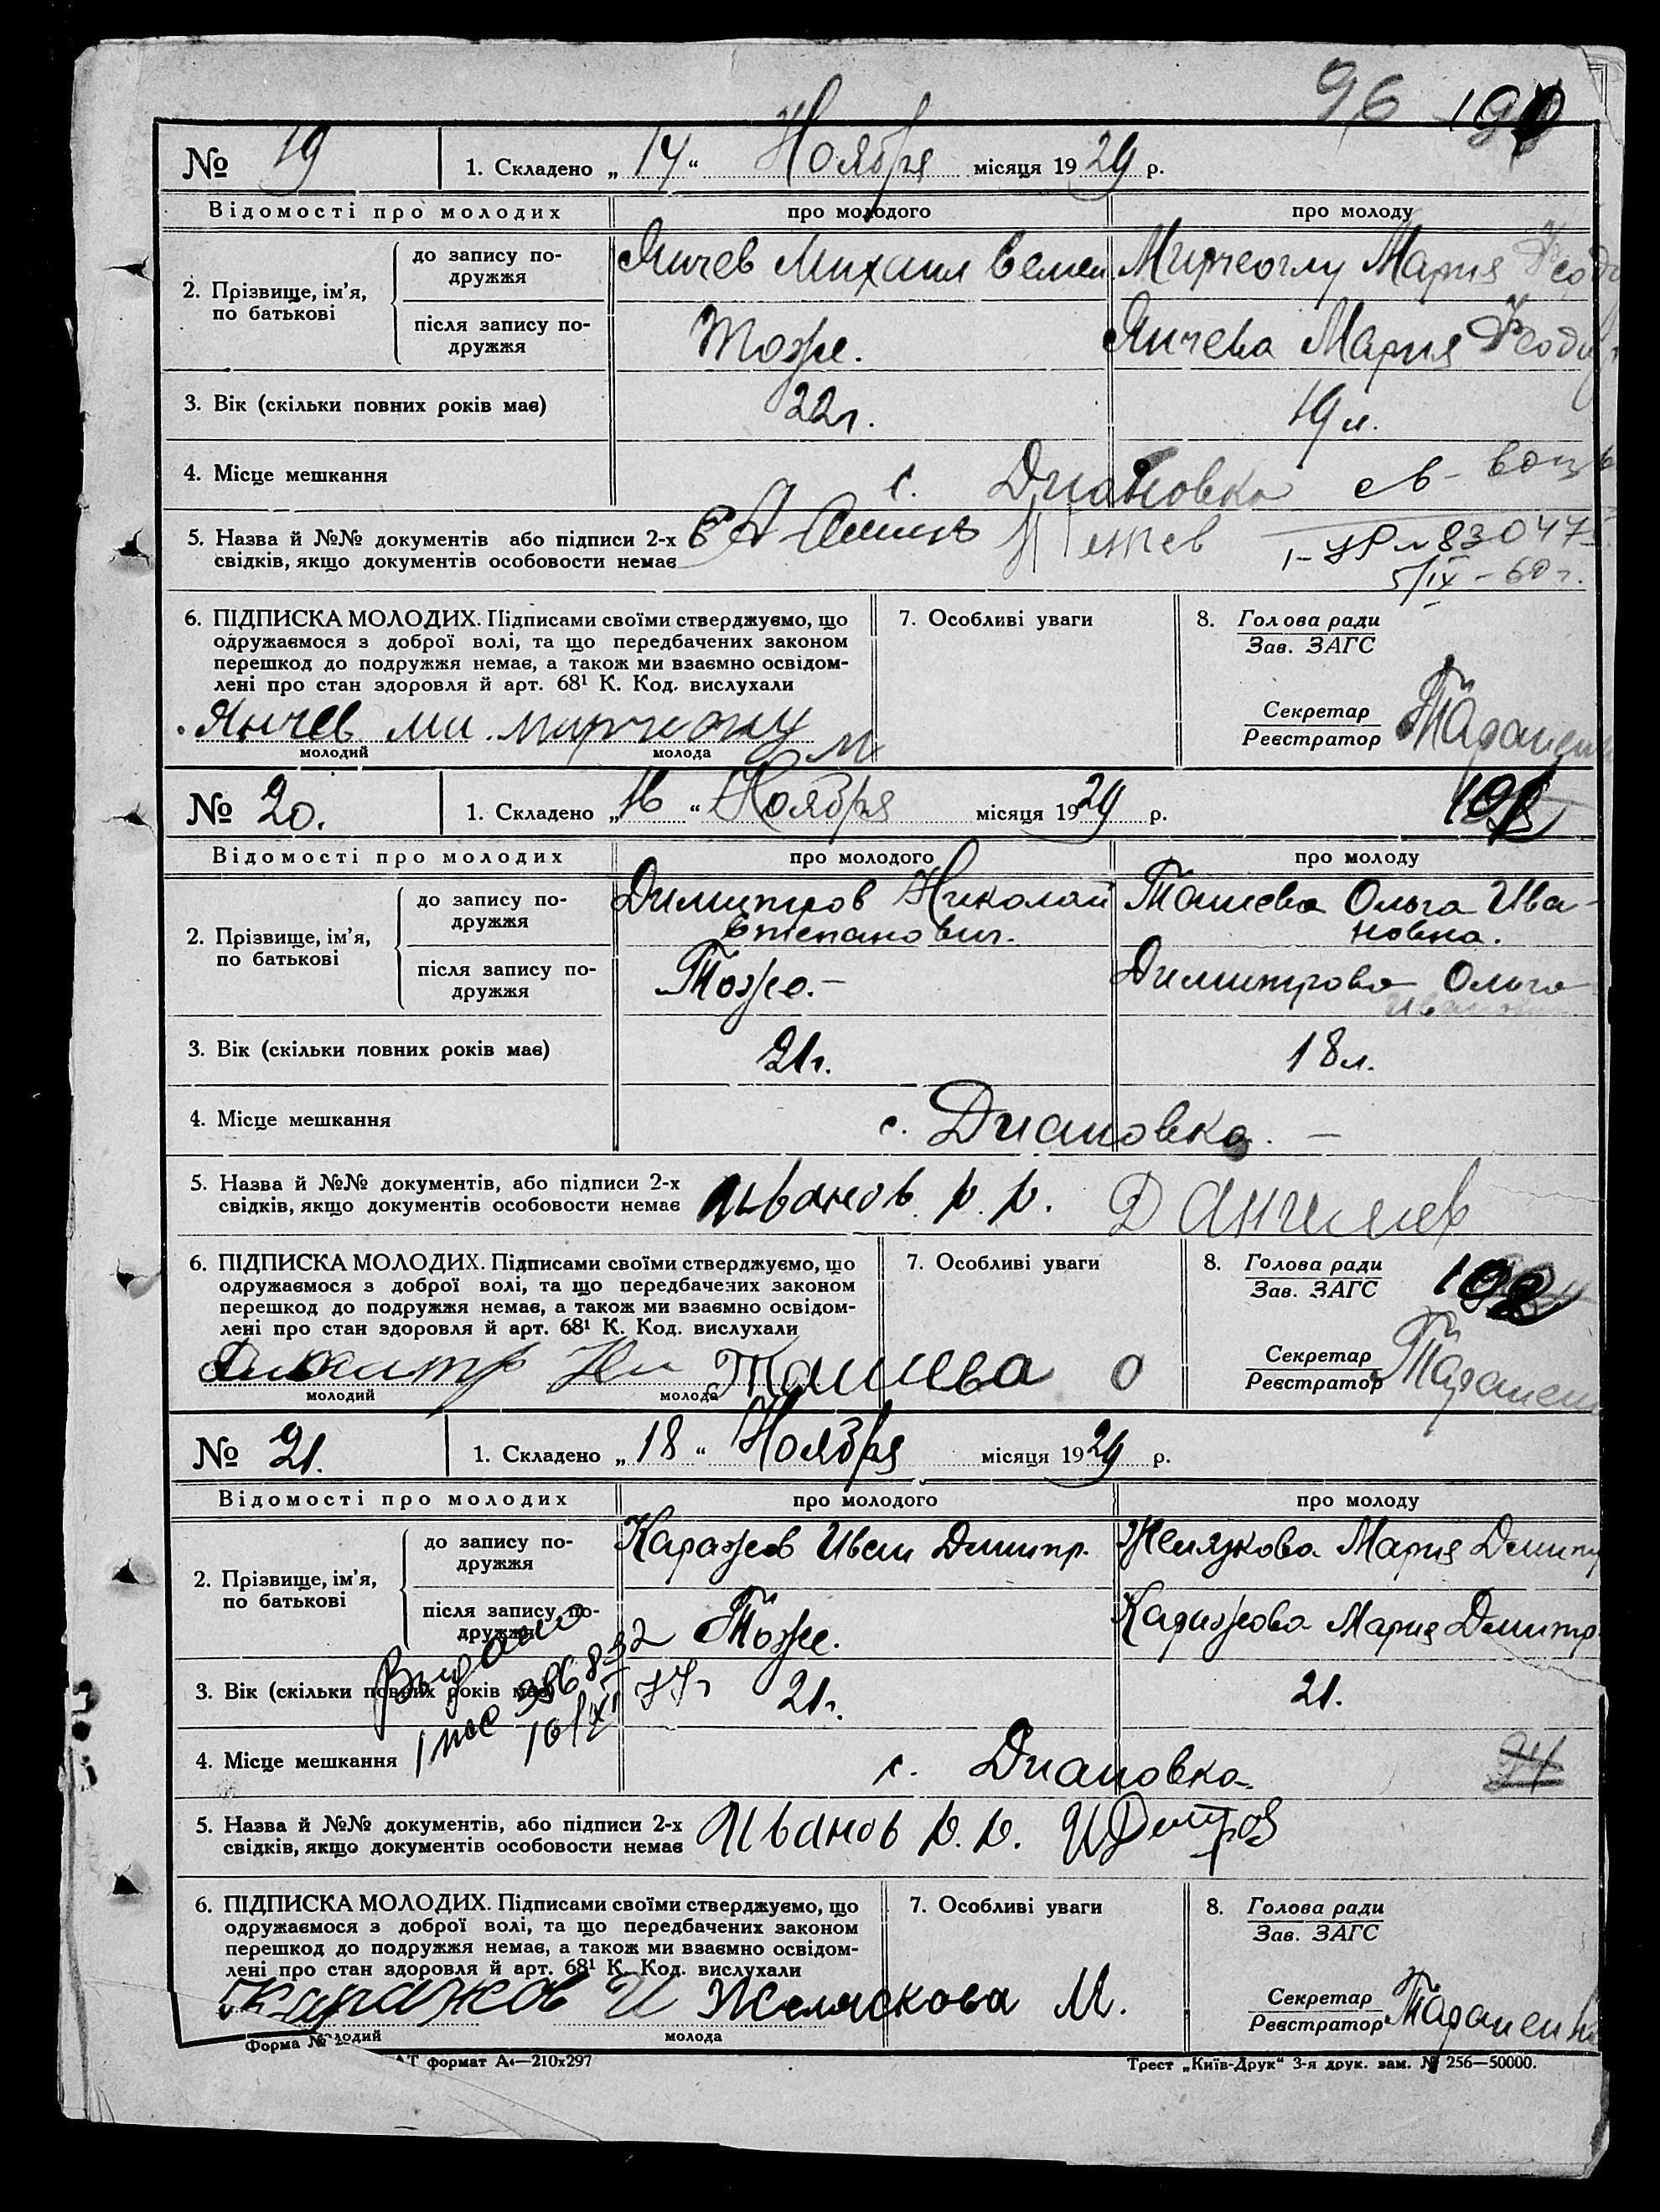 96
№ 19 1. Складено „14“ Ноября місяця 1929 р.
Відомості про молодих про молодого про молоду
2. Прізвище, ім'я, по батькові
до запису подружжя Янчев Михаил Семен Мирчеоглу Мария Феод
після запису подружжя Тоже. Янчева Мария Феод
3. Вік (скільки повних років має) 22 г. 19 л.
4. Місце мешкання с. Диановка
5. Назва й №№ документів або підписи 2-х
свідків, якщо документів особовости немає
№ 83047
5/IX – 60 г.
6. ПІДПИСКА МОЛОДИХ. Підписами своїми стверджуємо, що
одружаємося з доброї волі, та що передбачених законом
перешкод до подружжя немає, а також ми взаємно освідом-
лені про стан здоровля й арт. 68¹ К. Код. вислухали
7. Особливі уваги
8. Голова ради
Зав. ЗАГС
Секретар
Реєстратор
Янчев ми мирчеоглу м
молодий молода
№ 20. 1. Складено „16“ Ноября місяця 1929 р.
Відомості про молодих про молодого про молоду
2. Прізвище, ім'я, по батькові
до запису подружжя Димитров Николай Степанович. Ташева Ольга Ива-
новна.
після запису подружжя Тоже.– Димитрова Ольга
Ивановн
3. Вік (скільки повних років має) 21 г. 18 л.
4. Місце мешкання с. Диановка. –
5. Назва й №№ документів, або підписи 2-х
свідків, якщо документів особовости немає
Иванов р. р. Д Ангелев
6. ПІДПИСКА МОЛОДИХ. Підписами своїми стверджуємо, що
одружаємося з доброї волі, та що передбачених законом
перешкод до подружжя немає, а також ми взаємно освідом-
лені про стан здоровля й арт. 68¹ К. Код. вислухали
7. Особливі уваги
8. Голова ради
Зав. ЗАГС
102
Секретар
Реєстратор
Димитр Ни Ташева О
молодий молода
№ 21. 1. Складено „18“ Ноября місяця 1929 р.
Відомості про молодих про молодого про молоду
2. Прізвище, ім'я, по батькові
до запису подружжя Каражов Иван Дмитр. Желязкова Мария Дмитр
після запису подружжя Тоже. Каражова Мария Дмитр.
Выдано
3. Вік (скільки повних років має) 21 г. 21.
4. Місце мешкання с. Диановка
94
5. Назва й №№ документів, або підписи 2-х
свідків, якщо документів особовости немає
Иванов р. р. И Дмитров
6. ПІДПИСКА МОЛОДИХ. Підписами своїми стверджуємо, що
одружаємося з доброї волі, та що передбачених законом
перешкод до подружжя немає, а також ми взаємно освідом-
лені про стан здоровля й арт. 68¹ К. Код. вислухали
7. Особливі уваги
8. Голова ради
Зав. ЗАГС
Секретар
Реєстратор
Каражов И Желяскова М.
молодий молода
Форма №
формат А₄—210х297
Трест „Київ-Друк“ 3-я друк. зам. № 256—50000.